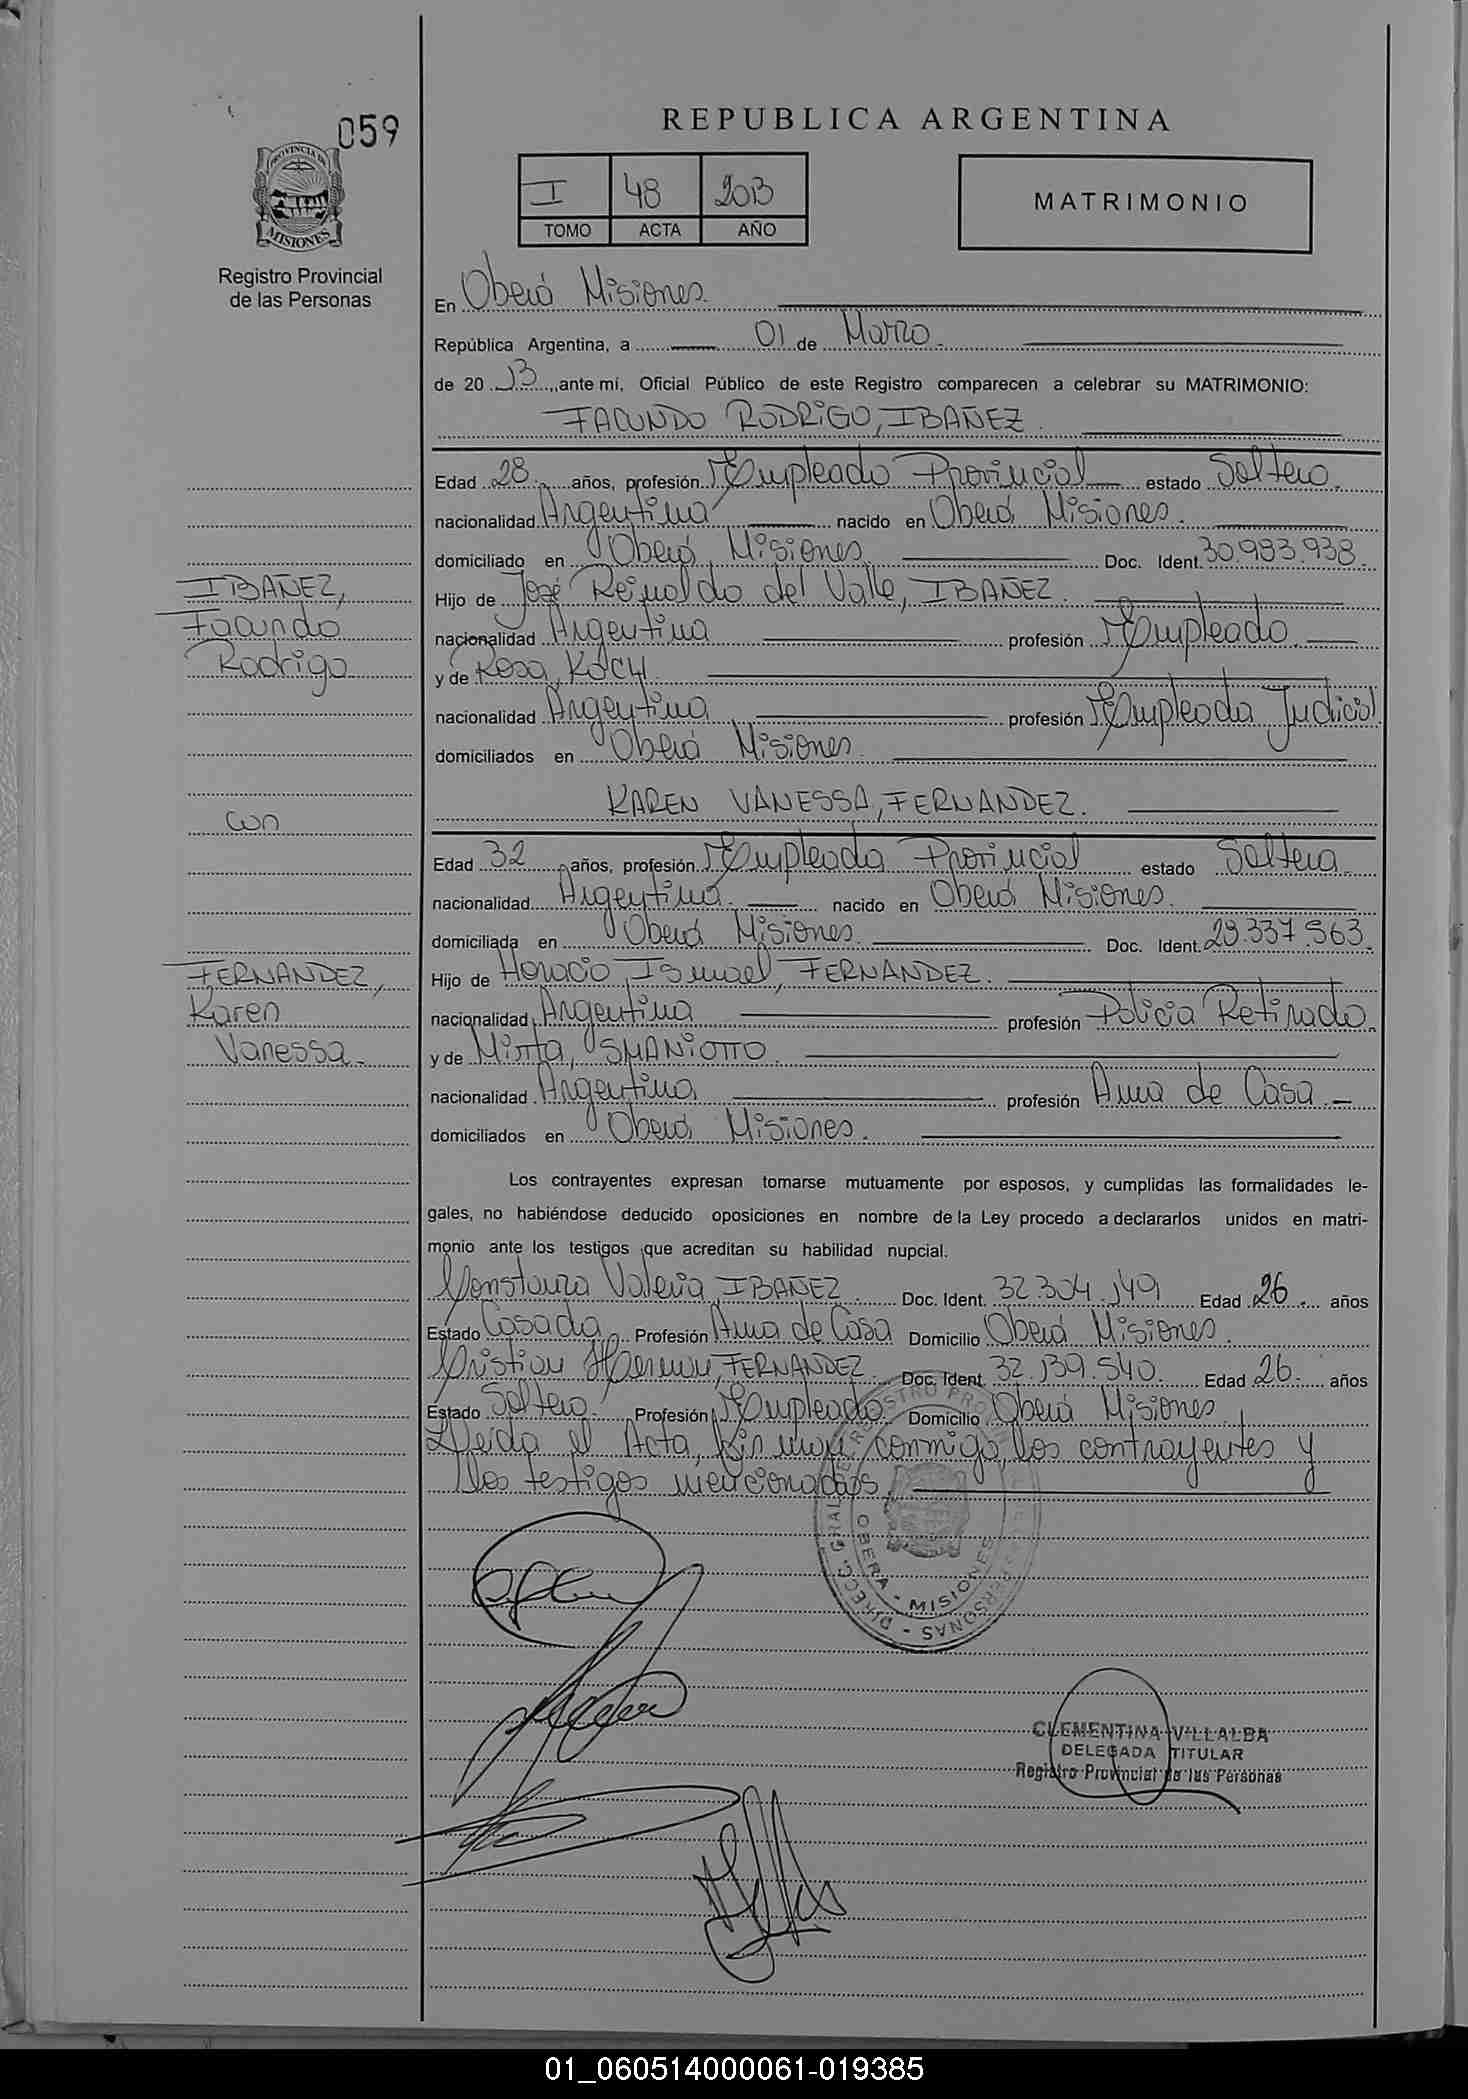 059
PROVINCIA DE
MISIONES
Registro Provincial
de las Personas
REPUBLICA ARGENTINA
I 48 2013
TOMO ACTA AÑO
MATRIMONIO
En Oberá Misiones.
República Argentina, a 01 de Marzo.
de 20 13, ante mí, Oficial Público de este Registro comparecen a celebrar su MATRIMONIO:
FACUNDO RODRIGO, IBAÑEZ.
Edad 28. años, profesión Empleado Provincial estado Soltero.
nacionalidad Argentina nacido en Oberá Misiones.
domiciliado en Oberá Misiones Doc. Ident. 30.983.938.
Hijo de José Reinaldo del Valle, IBAÑEZ.
nacionalidad Argentina profesión Empleado.
y de Rosa, KOCH.
nacionalidad Argentina profesión Empleada Judicial
domiciliados en Oberá Misiones.
IBAÑEZ,
Facundo
Rodrigo
con
FERNANDEZ,
Karen
Vanessa.
KAREN VANESSA, FERNANDEZ.
Edad 32 años, profesión Empleada Provincial estado Soltera.
nacionalidad Argentina. nacido en Oberá Misiones.
domiciliada en Oberá Misiones. Doc. Ident. 28.337.563.
Hijo de Horacio Ismael, FERNANDEZ.
nacionalidad Argentina profesión Policia Retirado.
y de Mirta, SMANIOTTO.
nacionalidad Argentina profesión Ama de Casa.
domiciliados en Oberá Misiones.
Los contrayentes expresan tomarse mutuamente por esposos, y cumplidas las formalidades le-
gales, no habiéndose deducido oposiciones en nombre de la Ley procedo a declararlos unidos en matri-
monio ante los testigos que acreditan su habilidad nupcial.
Constanza Valeria, IBAÑEZ. Doc. Ident. 32.304.149 Edad 26. años
Estado Casada Profesión Ama de Casa Domicilio Oberá Misiones.
Cristian Hernan, FERNANDEZ. Doc. Ident. 32.139.540. Edad 26. años
Estado Soltero. Profesión Empleado Domicilio Oberá Misiones.
Leida el Acta, firman conmigo, los contrayentes y
los testigos mencionados.
OBERA - MISIONES
CLEMENTINA VILLALBA
DELEGADA TITULAR
Registro Provincial de las Personas
01_060514000061-019385